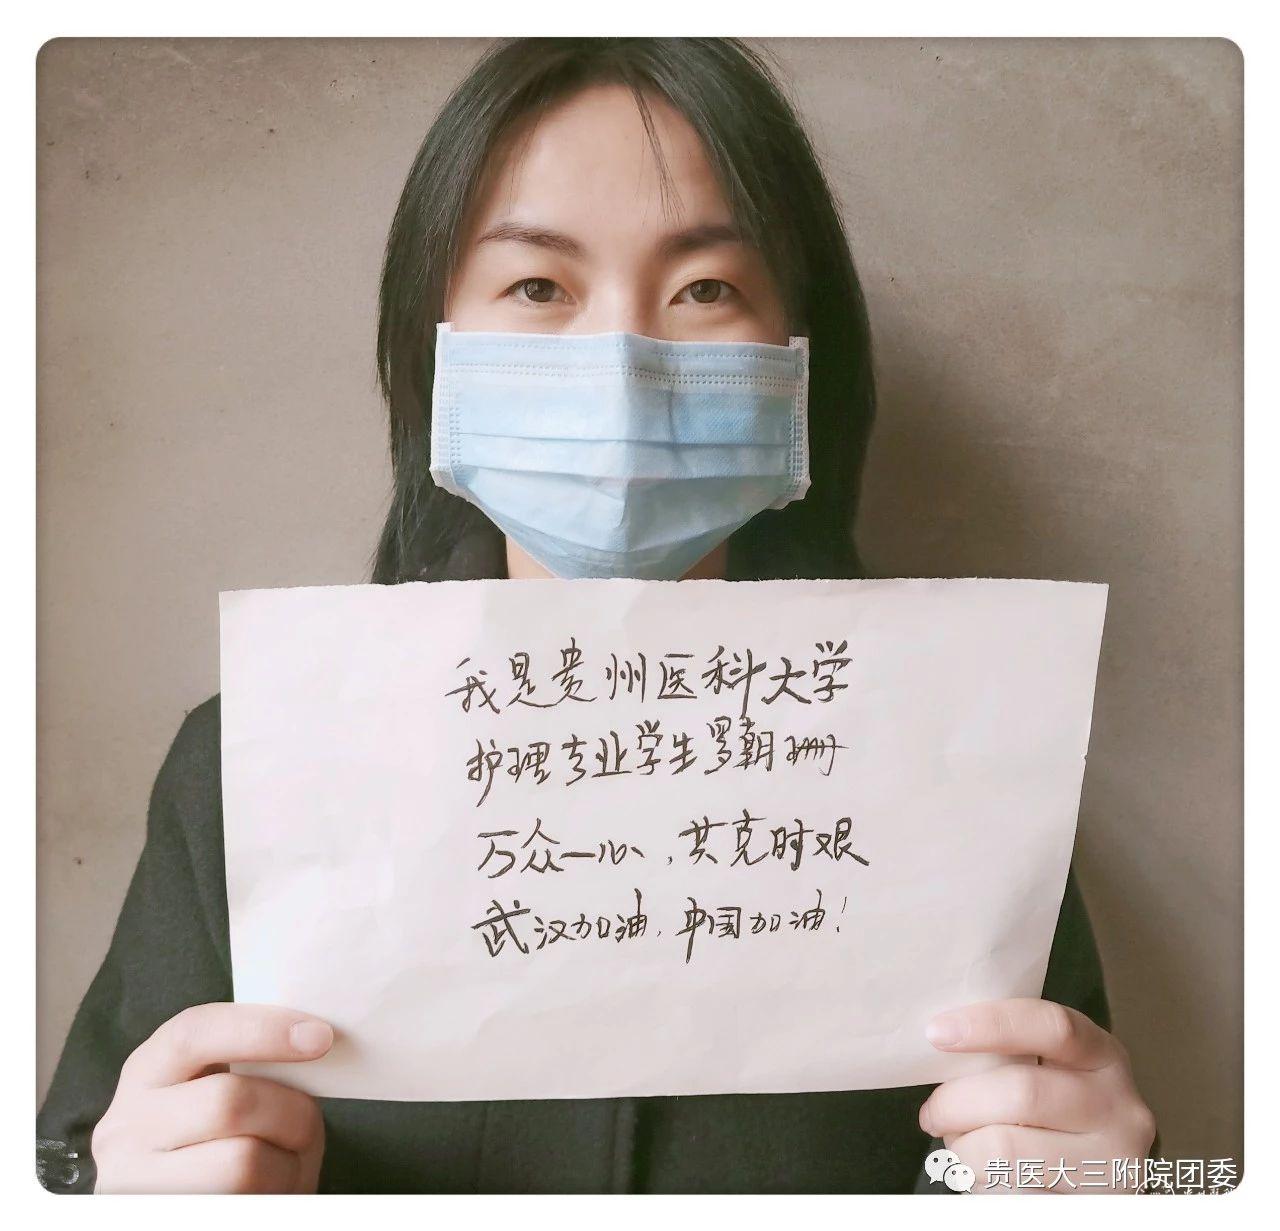 我是贵州医科大学
护理专业学生罗朝珊
万众一心，共克时艰
武汉加油，中国加油！
贵医大三附院团委